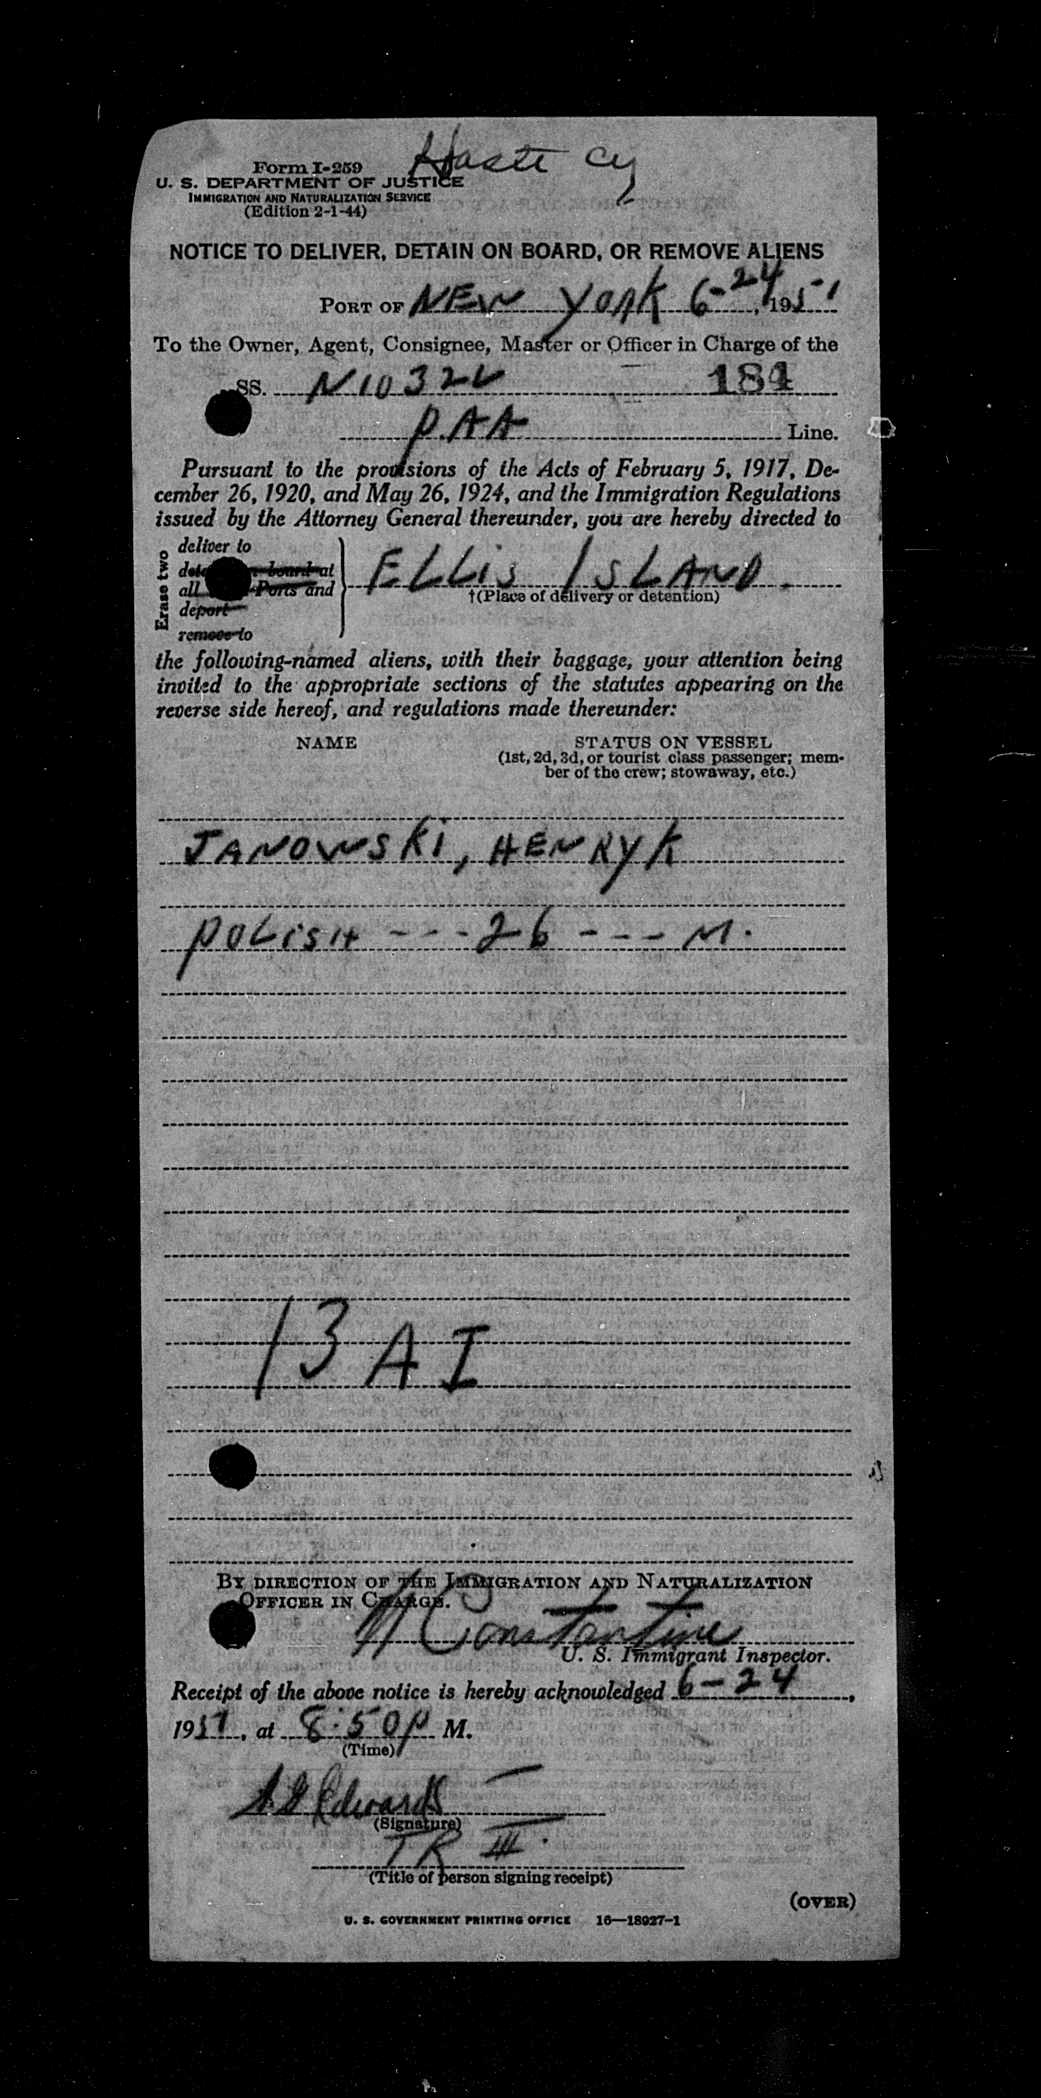 Haste Cy
Form I-259
U. S. DEPARTMENT OF JUSTICE
IMMIGRATION AND NATURALIZATION SERVICE
(Edition 2-1-44)
NOTICE TO DELIVER, DETAIN ON BOARD, OR REMOVE ALIENS
PORT OF NEW YORK 6-24, 1951
To the Owner, Agent, Consignee, Master or Officer in Charge of the
SS. N1032V 184
P.AA Line.
Pursuant to the provisions of the Acts of February 5, 1917, De-
cember 26, 1920, and May 26, 1924, and the Immigration Regulations
issued by the Attorney General thereunder, you are hereby directed to
Erase two
deliver to
board at
all Ports and
deport
remove to
ELLIS ISLAND.
†(Place of delivery or detention)
the following-named aliens, with their baggage, your attention being
invited to the appropriate sections of the statutes appearing on the
reverse side hereof, and regulations made thereunder:
NAME STATUS ON VESSEL
(1st, 2d, 3d, or tourist class passenger; mem-
ber of the crew; stowaway, etc.)
JANOWSKI, HENRYK
POLISH --- 26 --- M.
13 A I
BY DIRECTION OF THE IMMIGRATION AND NATURALIZATION
OFFICER IN CHARGE.
Constantine
U. S. Immigrant Inspector.
Receipt of the above notice is hereby acknowledged 6-24,
1951, at 8:50 P M.
(Time)
Edwards
(Signature)
TR III.
(Title of person signing receipt)
(OVER)
U. S. GOVERNMENT PRINTING OFFICE 16—18027-1